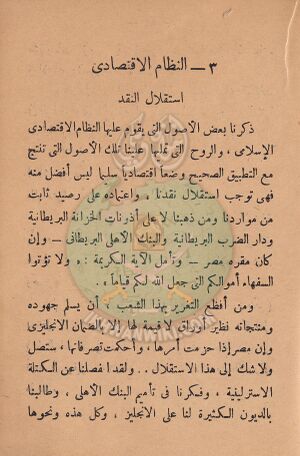 ٣ — النظام الاقتصادى
استقلال النقد
ذكرنا بعض الأصول التى يقوم عليها النظام الاقتصادى
الإسلامى، والروح التى تمليها علينا تلك الأصول التى تنتج
مع التطبيق الصحيح وضعاً اقتصادياً سليما ليس أفضل منه
فهى توجب استقلال نقدنا، واعتماده على رصيد ثابت
من مواردنا ومن ذهبنا لا على أذونات الخزانة البريطانية
ودار الضرب البريطانية والبنك الأهلى البريطانى — وإن
كان مقره مصر — وتأمل الآية الكريمة: « ولا تؤتوا
السفهاء أموالكم التى جعل الله لكم قياماً » .
ومن أفظع التغرير بهذا الشعب ، أن يسلم جهوده
ومنتجاته نظير أوراق لا قيمة لها إلا بالضمان الانجليزى
وإن مصر إذا حزمت أمرها ، وأحكمت تصرفاتها ، ستصل
ولا شك إلى هذا الاستقلال .. ولقد انفصلنا عن الكتلة
الاسترلينية ، وفكرنا فى تأميم البنك الأهلى ، وطالبنا
بالديون الكثيرة لنا على الانجليز ، وكل هذه ونحوها